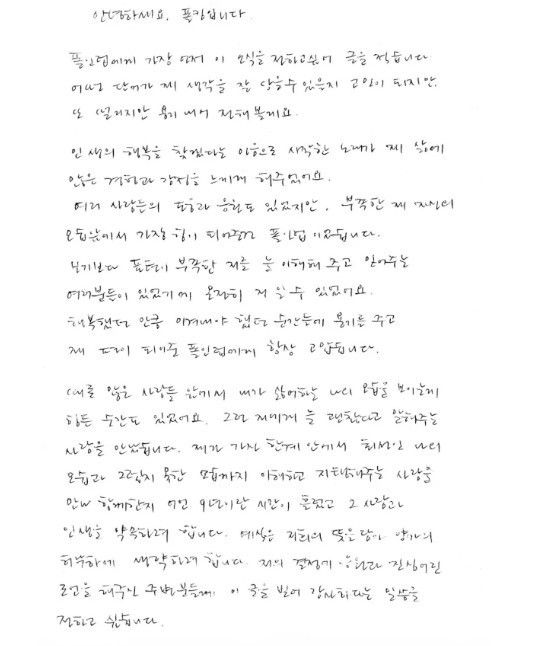 안녕하세요. 폴킴입니다.
폴인럽에게 가장 먼저 이 소식을 전하고싶어 글을 적습니다
어떤 단어가 제 생각을 잘 담을수 있을지 고민이 되지만,
또 떨리지만 용기 내어 전해볼게요.
인생의 행복을 찾겠다는 이유로 시작한 노래가 제 삶에
많은 경험과 감정을 느끼게 해주었어요.
여러 사람들의 도움과 응원도 있었지만, 부족한 제 자신의
모습앞에서 가장 힘이 되어준건 폴인럽이었습니다.
보기보다 표현이 부족한 저를 늘 이해해 주고 믿어주는
여러분들이 있었기에 온전히 저 일 수 있었어요.
행복했던 만큼 이겨내야 했던 순간들에 용기를 주고
제 편이 되어준 폴인럽에게 항상 고맙습니다.
때론 많은 사람들 앞에서 내가 싫어하는 나의 모습을 보이는게
힘든 순간도 있었어요. 그런 저에게 늘 괜찮다고 말해주는
사람을 만났습니다. 제가 가진 한계 안에서 최선인 나의
모습과 그렇지 못한 모습까지 이해하고 지탱해주는 사람을
만나 함께한지 어언 9년이란 시간이 흘렀고 그 사람과
인생을 약속하려 합니다. 예식은 저희의 뜻은 담아 양가의
허락하에 생략하려 합니다. 저의 결정에 응원과 진심어린
조언을 해주신 주변분들께 이 글을 빌어 감사하다는 말씀을
전하고 싶습니다.